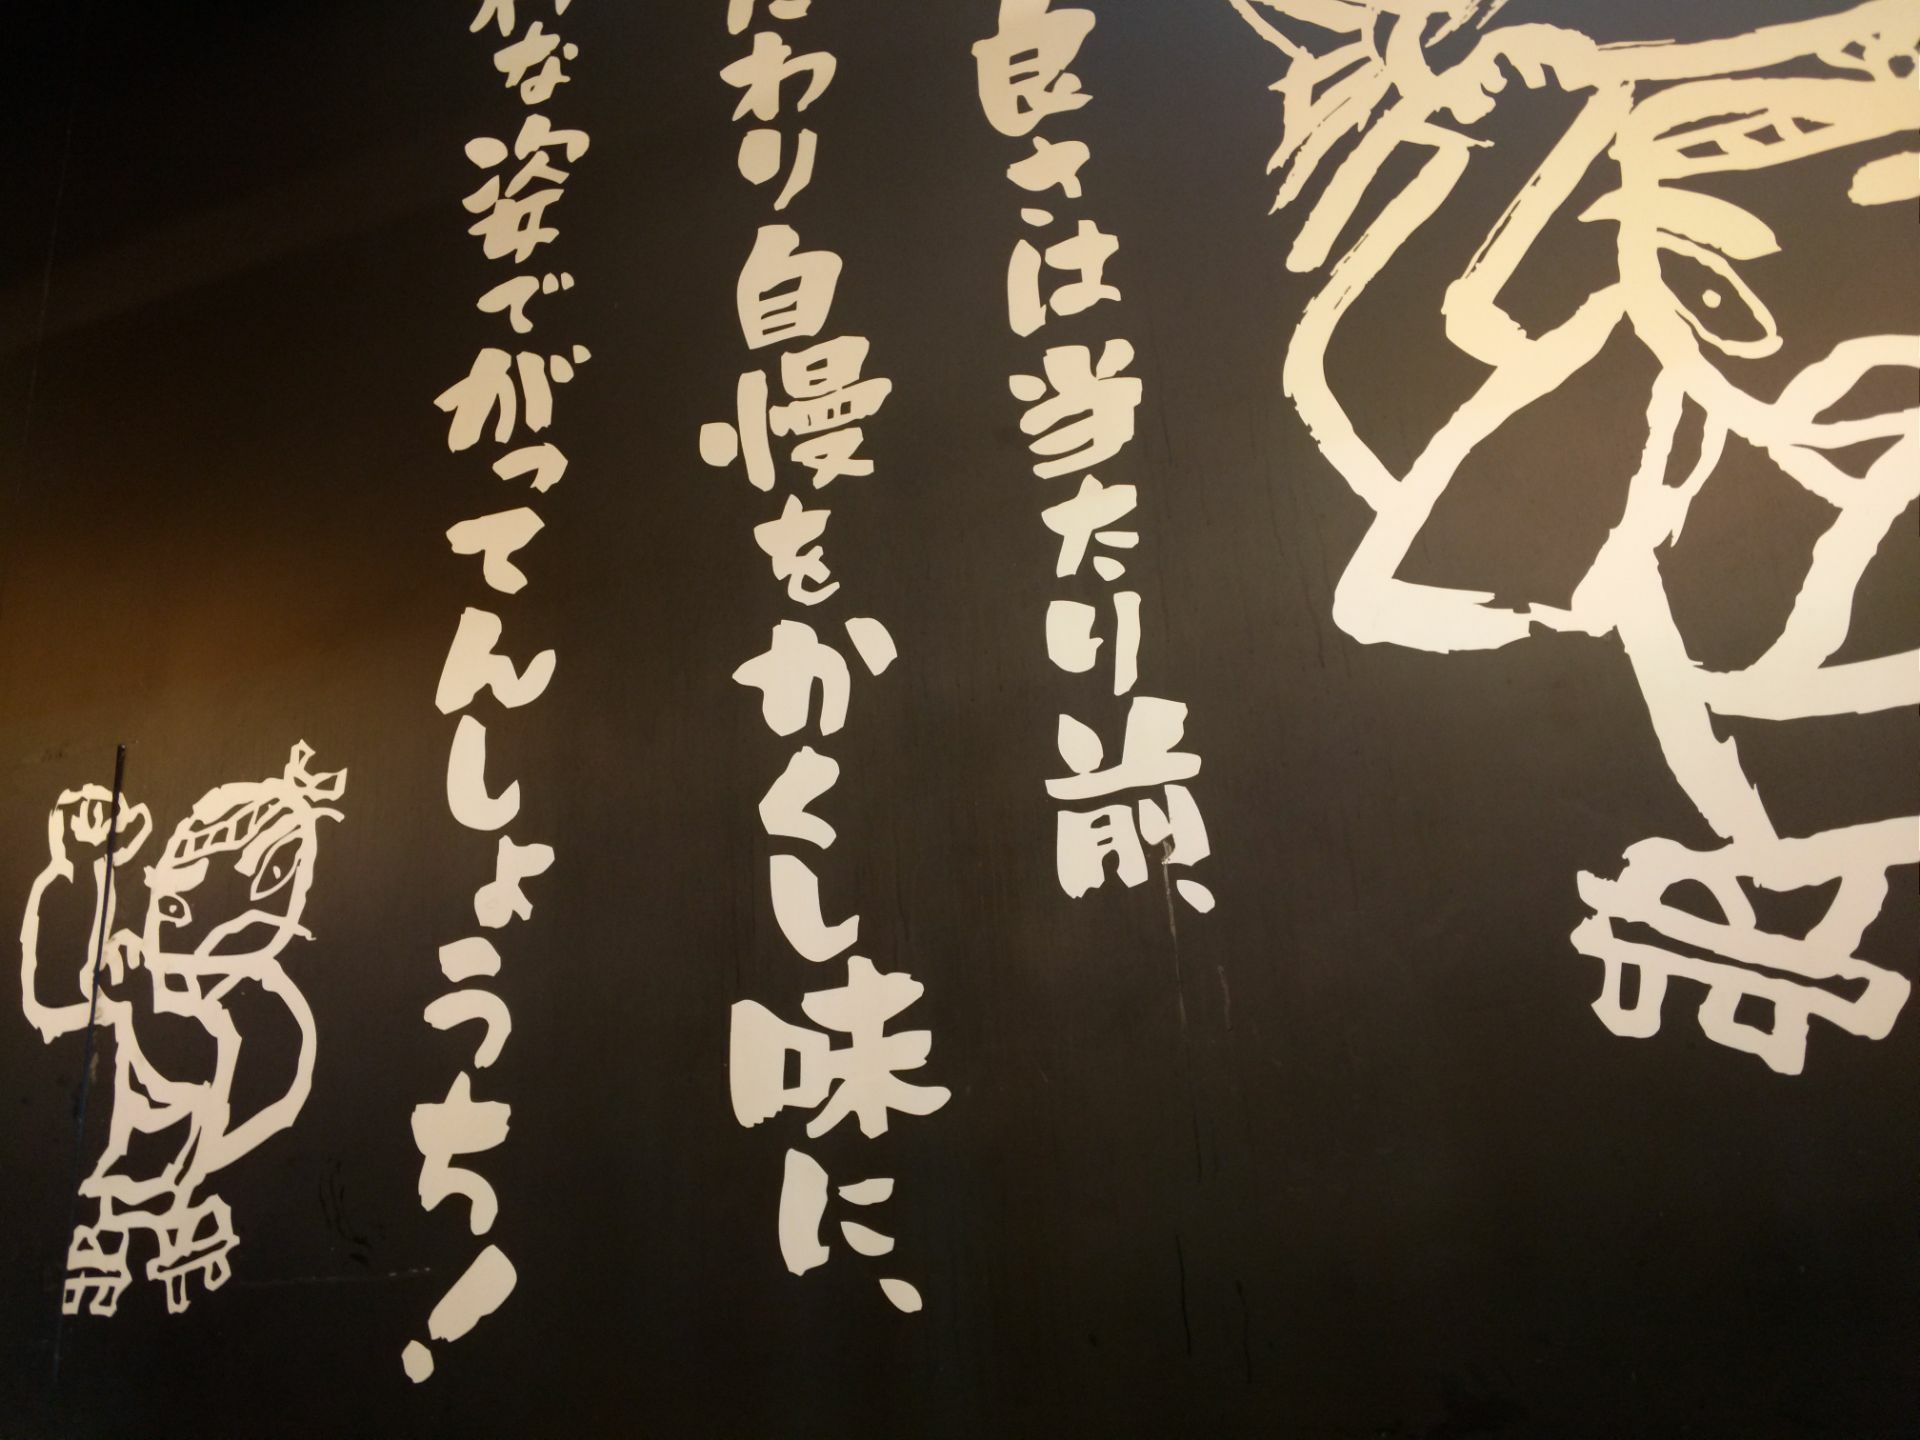 良さは当たり前、
だわり自慢をかくし味に、
な姿でがってんしょうち!